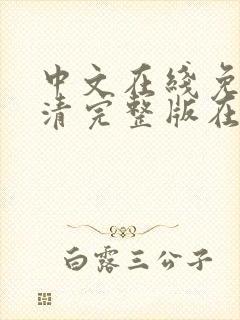 中文在线免
清完整版在
白露三公子